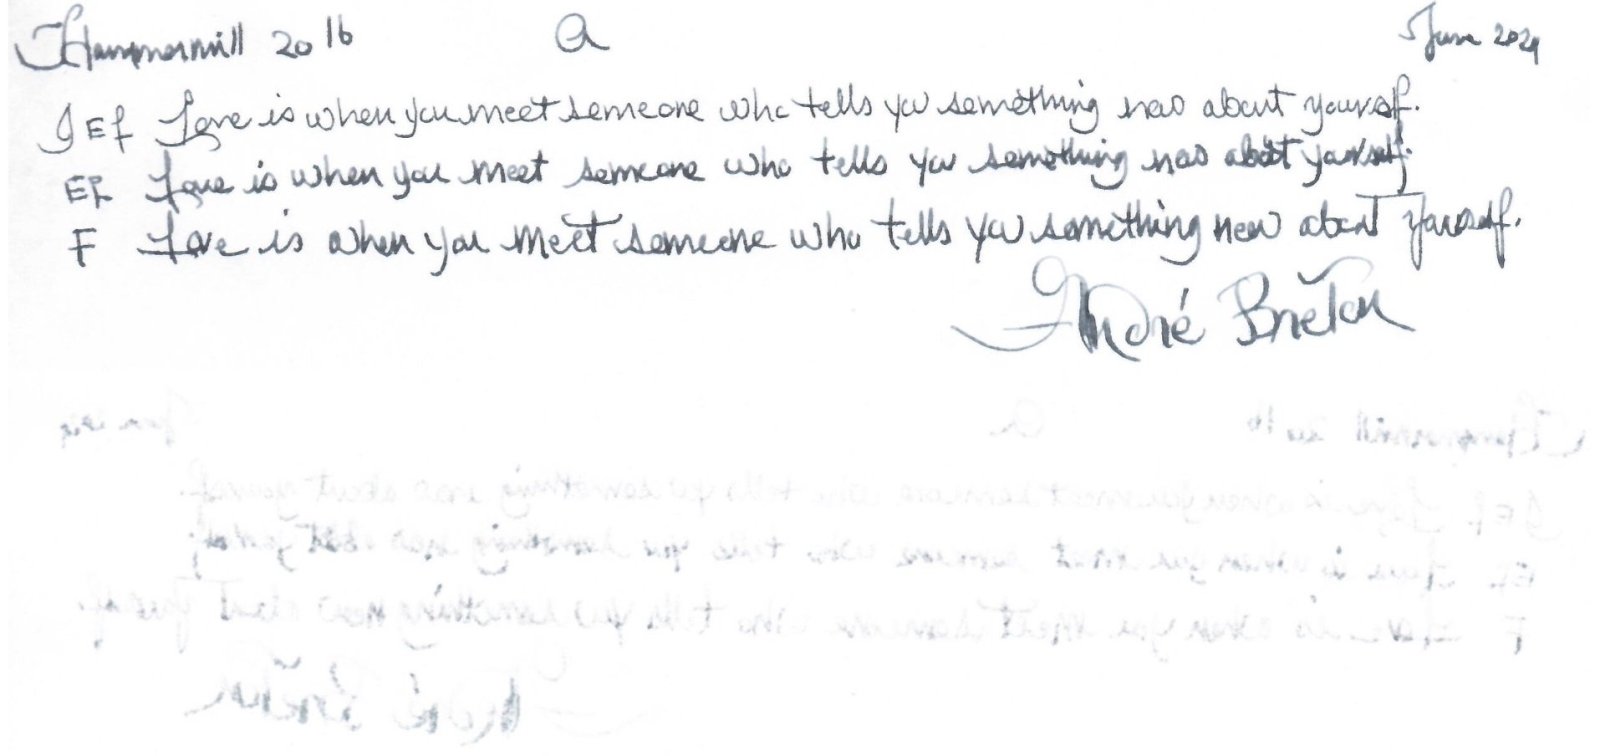 Hammermill 20 lb A June 2024
JEf Love is when you meet someone who tells you something new about yourself.
Ef Love is when you meet someone who tells you something new about yourself.
F Love is when you meet someone who tells you something new about yourself.
André Breton